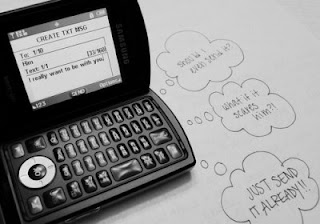 SAMSUNG
CREATE TXT MSG
To: 1/10
Him
Text: 1/1
I really want to be with you
123
SEND
Options
What if it
scares
him?!
JUST SEND
IT ALREADY!!